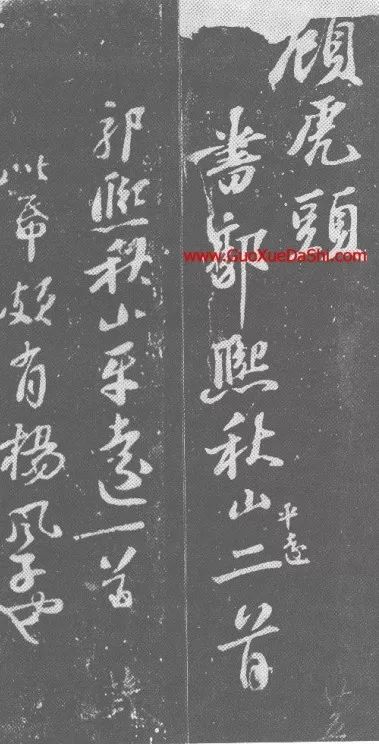 顧虎頭
書郭熙秋山平遠二首
郭熙秋山平遠一首
此帋頗有楊風子也
www.GuoXueDaShi.com